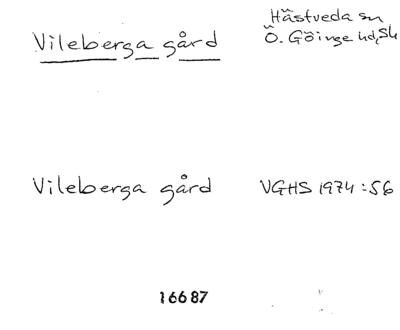 Vileberga gård
Hästveda sn
Ö. Göinge hd, Sk
Vileberga gård VGHS 1974:56
16687